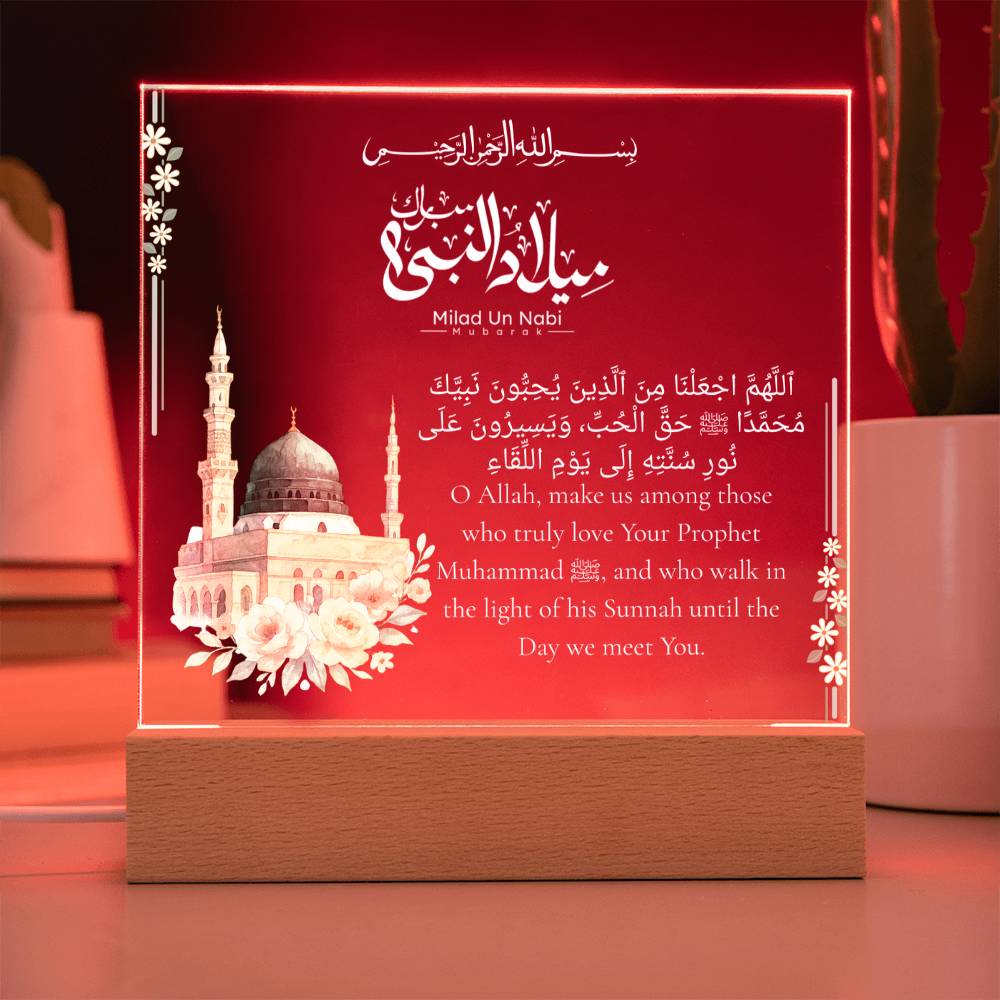 بِسْمِ اللهِ الرَّحْمٰنِ الرَّحِيْمِ
ميلاد النبي مبارك
Milad Un Nabi
Mubarak
ٱللَّهُمَّ اجْعَلْنَا مِنَ ٱلَّذِينَ يُحِبُّونَ نَبِيَّكَ
مُحَمَّدًا ﷺ حَقَّ الْحُبِّ، وَيَسِيرُونَ عَلَى
نُورِ سُنَّتِهِ إِلَى يَوْمِ اللِّقَاءِ
O Allah, make us among those
who truly love Your Prophet
Muhammad ﷺ, and who walk in
the light of his Sunnah until the
Day we meet You.